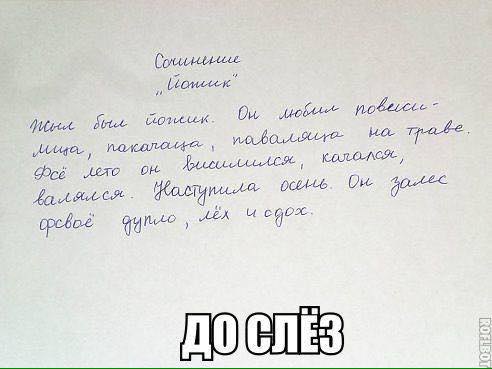 Сочинение
„Йожик"
Жыл был йожик. Он любил повеси-
лица, пакагаца, паваляца на траве.
Фсё лето он висилился, кагался,
валялся. Наступила осень. Он залес
фсвоё дупло, лёх и сдох.
ДО СЛЁЗ
ROFLBOT